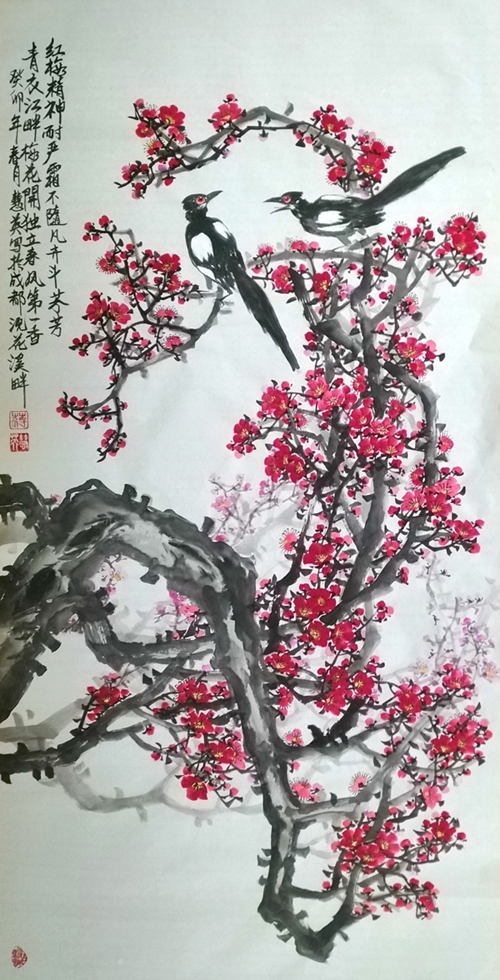 红梅精神耐严霜不随凡卉斗芬芳
青衣江畔梅花開独立春风第一香
癸卯年春月慧英写於成都浣花溪畔